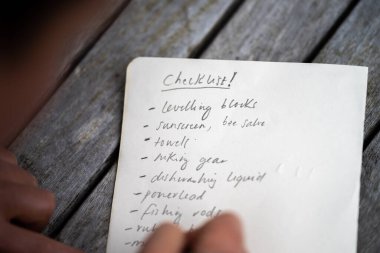 Checklist!
- levelling blocks
- sunscreen, bee salve
- towels
- hiking gear
- dishwashing liquid
- powerlead
- fishing rods